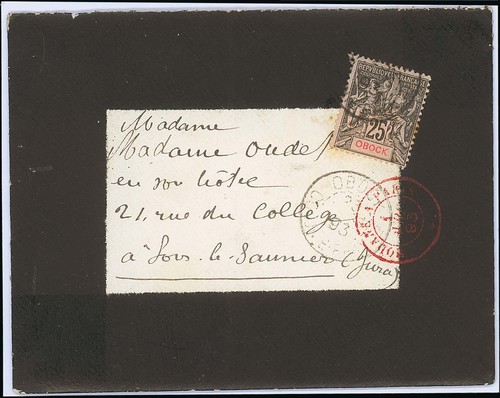 Madame
Madame Oudet
en son hôtel
21, rue du Collège
à Lons-le-Saunier (Jura)
REPUBLIQUE FRANÇAISE
25
OBOCK
OBO
93
PARIS
93